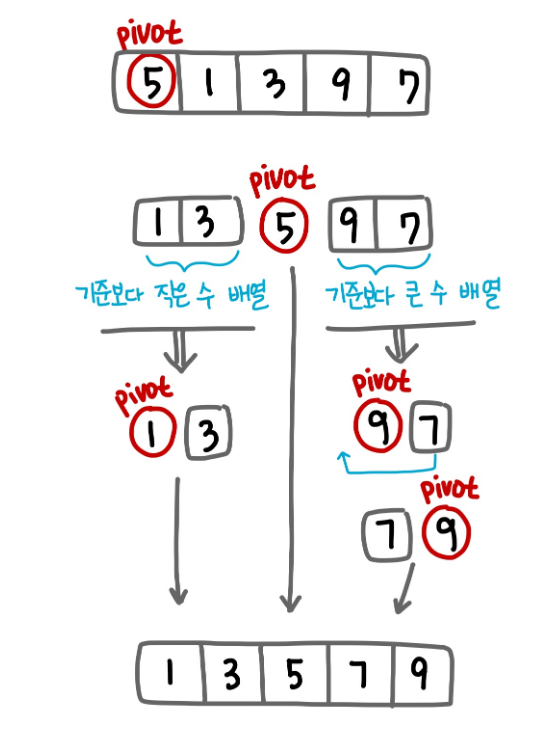 pivot
5 1 3 9 7
pivot
1 3 5 9 7
기준보다 작은 수 배열 기준보다 큰 수 배열
pivot pivot
1 3 9 7
pivot
7 9
1 3 5 7 9